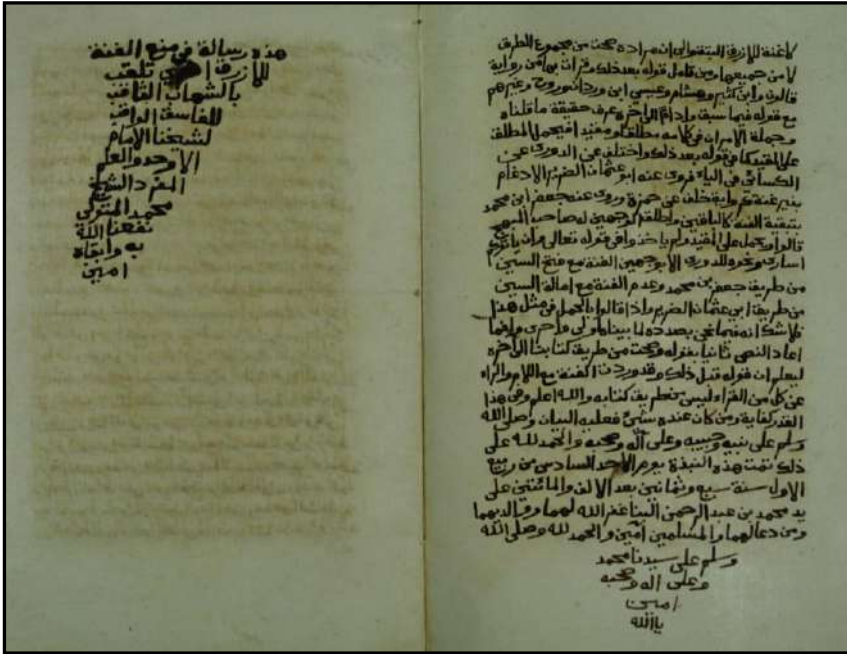 لا غنة للازرق البتة والى ان مراده صحت من مجموع الطرق
لا من جميعها ومن تامل قوله بعد ذلك وقرات بها من رواية
قالون وابن كثير وهشام وعيسى ابن وردان وروح وغيرهم
مع قوله فيما سبق واد الى اخره عرف حقيقة ما قلناه
وجملة الامر ان في كلامه مطلقا ومقيدا فيحمل المطلق
على المقيد كما في قوله بعد ذلك واختلف عن الدورى عن
الكسائى في الياء فروى عنه ابو عثمان الضرير الادغام
بغير غنة كرواية خلف عن حمزة وروى عنه جعفر ابن محمد
بتبقية الغنة كالباقين واطلق الوجهين له صاحب المبهج
قالوا يحمل على المقيد ولم ياخذوا في قوله تعالى وان ياتوكم
اسارى ونحوه للدورى الا بوجهين الغنة مع فتح السين
من طريق جعفر بن محمد وعدم الغنة مع امالة السين
من طريق ابى عثمان الضرير واذا قالوا بالحمل في مثل هذا
فلا شك انه فيما نحن بصدده لما بيناه اولى واحرى وانما
اعاد النص ثانيا بقوله وصحت من طريق كتابنا الى اخره
ليعلم ان قوله قبل ذلك وقد وردت الغنة مع اللام والراء
عن كل من القراء ليس من طريق كتابه والله اعلم وفي هذا
القدر كفاية ومن كان عنده شئ فعليه البيان وصلى الله
وسلم على نبيه وحبيبه وعلى آله وصحبه والحمد لله على
ذلك تمت هذه النبذة يوم الاحد السادس من ربيع
الاول سنة سبع وثمانين بعد الالف والمائتين على
يد محمد بن عبد الرحمن البنا غفر الله لهما ولوالديهما
ومن دعا لهما والمسلمين آمين والحمد لله وصلى الله
وسلم على سيدنا محمد
وعلى اله وصحبه
امين
يا الله
هذه رسالة في منع الغنة
للازرق تلقب
بالشهاب الثاقب
للغاسق الواقب
لشيخنا الامام
الاوحد والعلم
المفرد الشيخ
محمد المتولى
نفعنا الله
به وابقاه
امين